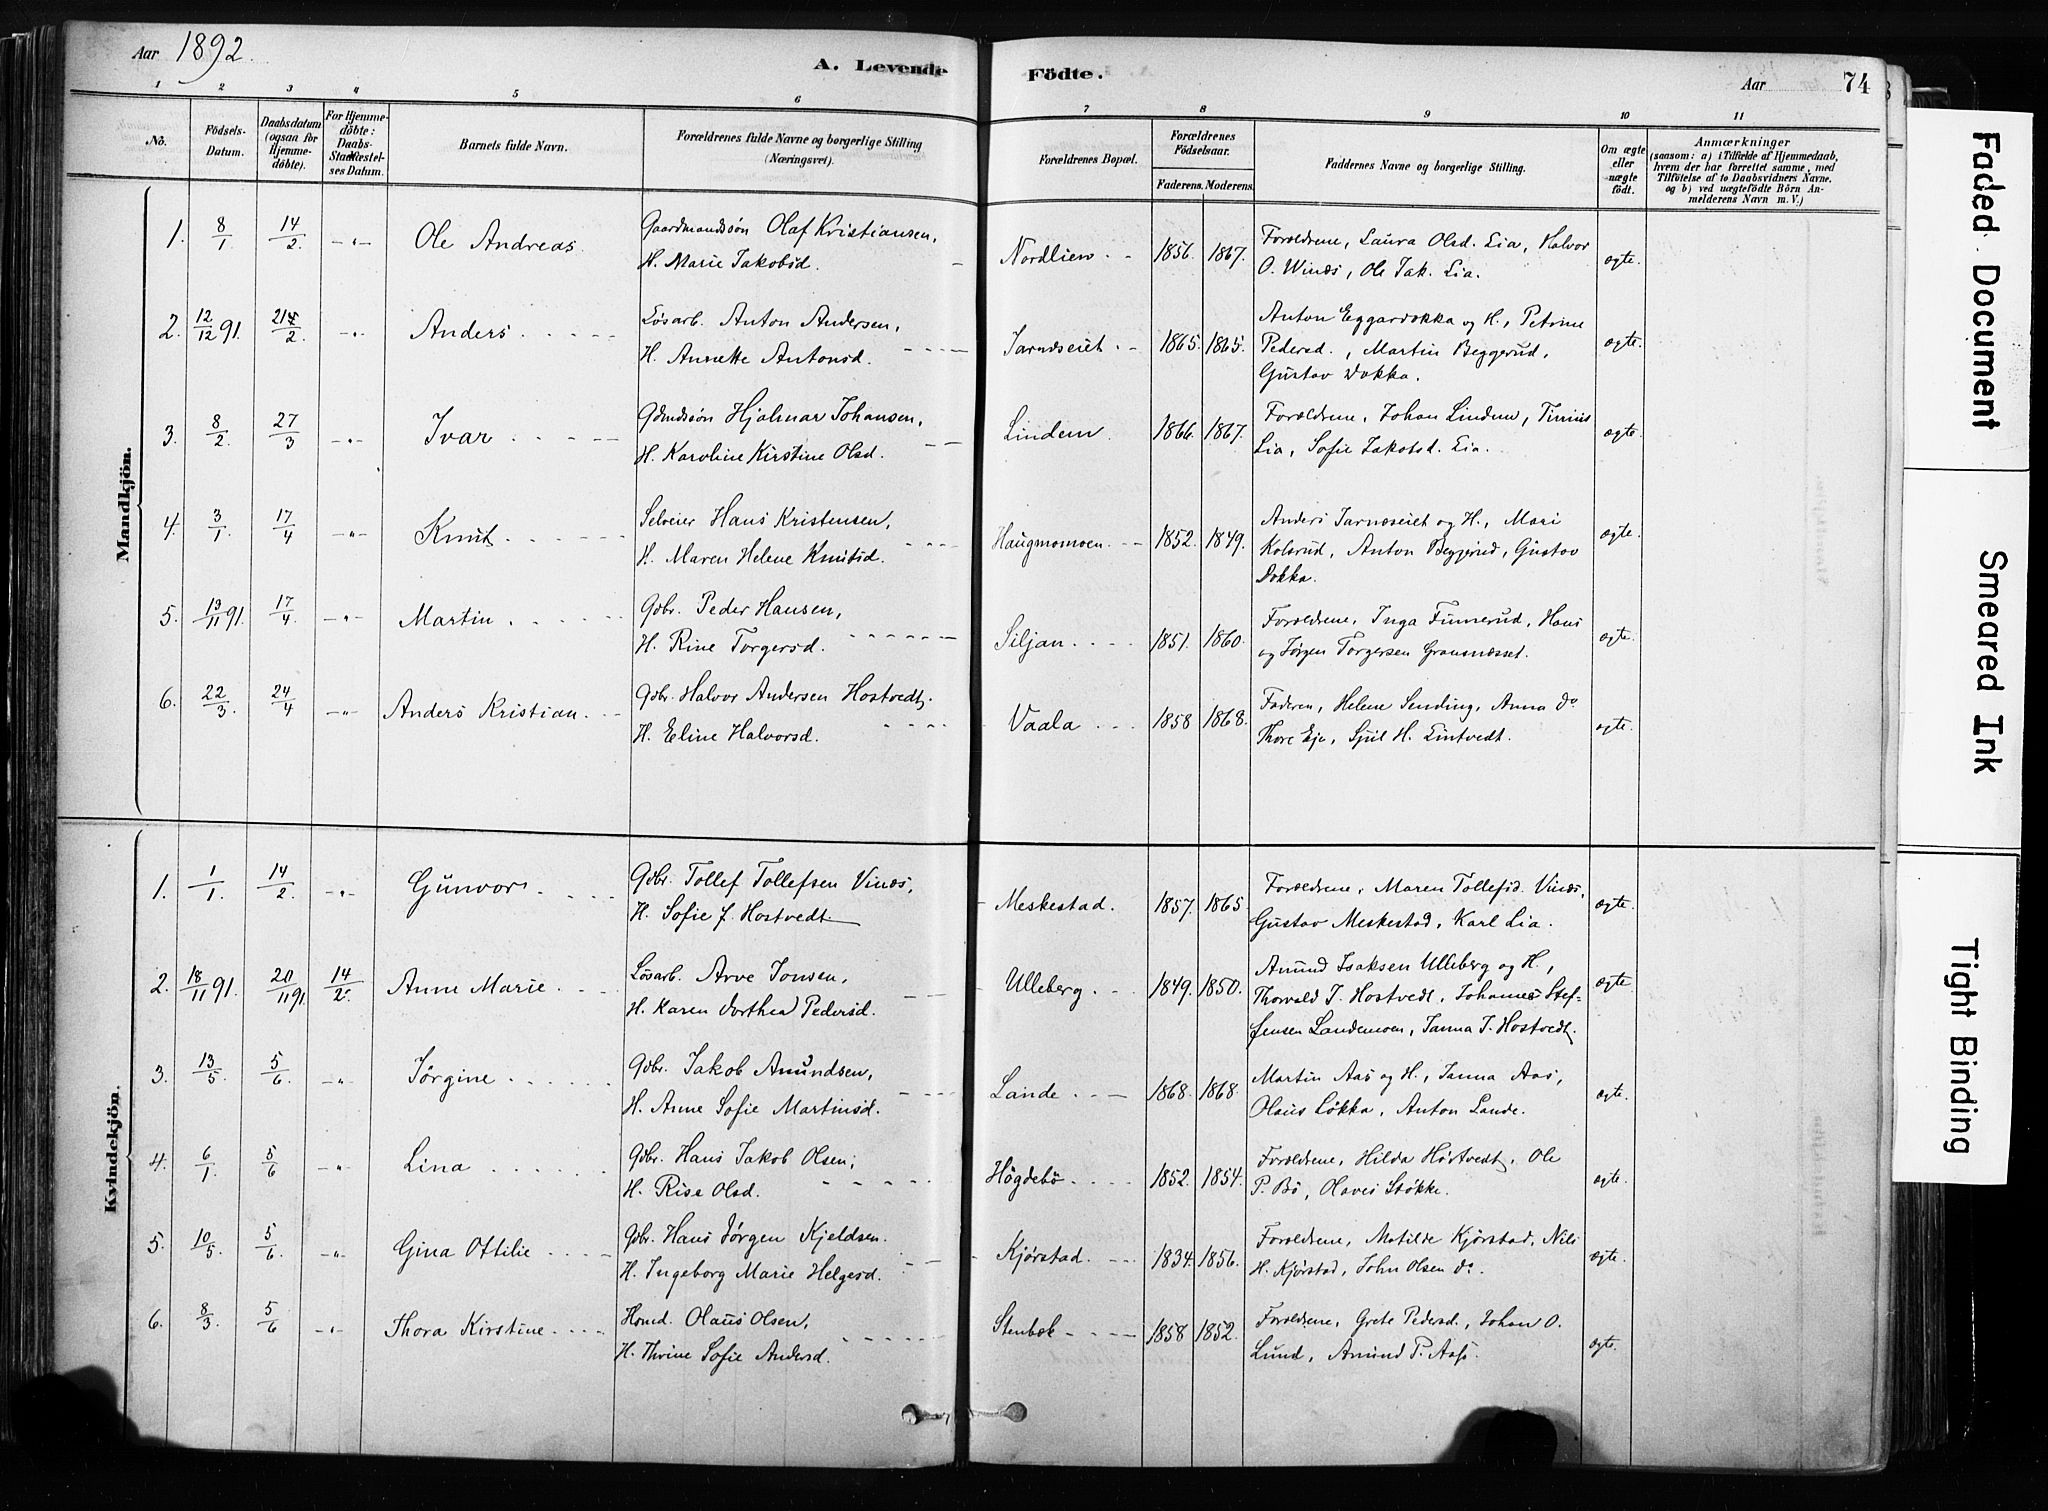 Aar 1892
A. Levende Födte.
Aar 74
1 2 3 4 5 6 7 8 9 10 11
No.
Födsels-Datum.
Daabsdatum (ogsaa for Hjemmedöbte).
For Hjemmedöbte: Daabs-Stadfæstelses Datum.
Barnets fulde Navn.
Forældrenes fulde Navne og borgerlige Stilling (Næringsvei).
Forældrenes Bopæl.
Forældrenes Födselsaar.
Faderens. Moderens.
Faddernes Navne og borgerlige Stilling.
Om ægte eller uægte födt.
Anmærkninger
(saasom: a) i Tilfælde af Hjemmedaab,
hvem der har forrettet samme, med
Tilföielse af to Daabsvidners Navne,
og b) ved uægtefödte Börn An-
melderens Navn m. V.)
Mandkjön.
1. 8/1 14/2 -„- Ole Andreas. Gaardmandssön Olaf Kristiansen, Nordlien 1856. 1867. Forældrene, Laura Olsd. Lia, Halvor ægte.
H. Marie Jakobsd. O. Winæs, Ole Jak. Lia.
2. 12/12 91. /2 -„- Anders Løsarb. Anton Andersen, Jarnæseiet 1865. 1865. Anton Eggardokka og H., Petrine ægte.
H. Annette Antonsd. Pedersd., Martin Beggerud,
Gustav Dokka.
3. 8/2 27/3 -„- Ivar Gdmdssön Hjalmar Johansen, Lindem 1866. 1867. Forældrene, Johan Lindem, Lia, Sofie Jakobsd. Lia. ægte.
H. Karoline Kirstine Olsd.
4. 3/1 17/4 -„- Knut Selveier Hans Kristensen, Haugmomoen 1852. 1849. Anders Jarnæseiet og H., Mari ægte.
H. Maren Helene Knutsd. Kolsrud, Anton Beggerud, Gustav
Dokka.
5. 13/11 91. 17/4 -„- Martin Gdbr. Peder Hansen, Siljan 1851. 1860. Forældrene, Inga Finnerud, Hans ægte.
H. Rine Torgersd. og Jørgen Torgersen Gransnæsset.
6. 22/3. 24/4 -„- Anders Kristian. Gdbr. Halvor Andersen Hostvedt, Vaala 1858 1868. Faderen, Helene Sending, Anna do ægte.
H. Eline Halvorsd. Thore Eje, H. Lintvedt.
Kvindekjön.
1. 1/1 14/2 -„- Gunvor Gdbr. Tollef Tollefsen Vinæs, Meskestad. 1857. 1865. Forældrene, Maren Tollefsd. Vinæs, ægte.
H. Sofie J. Hostvedt Gustav Meskestad, Karl Lia.
2. 18/11 91. 20/11 91. 14/2. Anne Marie Løsarb. Arve Jonsen, Ulleberg 1849. 1850. Amund Isaksen Ulleberg og H., ægte
H. Karen Dorthea Pedersd. Thorvald J. Hostvedt, Johannes Stef-
fensen Landemoen, Janna J. Hostvedt.
3. 13/5. 5/6. -„- Jørgine Gdbr. Jakob Amundsen, Lande 1868. 1868. Martin Aas og H., Janna Aas, ægte.
H. Anne Sofie Martinsd. Olaus Løkka, Anton Lande.
4. 6/1. 5/6 -„- Lina Gdbr. Hans Jakob Olsen, Högdebö 1852. 1854. Forældrene, Hilda Hostvedt, Ole ægte.
H. Rise Olsd. P. Bö, Olaves Støkke.
5. 10/5. 5/6. -„- Gina Ottilie Gdbr. Hans Jørgen Kjeldsen. Kjørstad. 1834. 1856. Forældrene, Matilde Kjørstad, Nils ægte.
H. Ingeborg Marie Helgesd. H. Kjørstad, John Olsen do.
6. 8/3 5/6 -„- Thora Kirstine Hsmd. Olaus Olsen, Stenbæk 1858 1852. Forældrene, Grete Pedersd., Johan O. ægte.
H. Thrine Sofie Andersd. Lund, Amund P. Aas.
Faded Document
Smeared Ink
Tight Binding